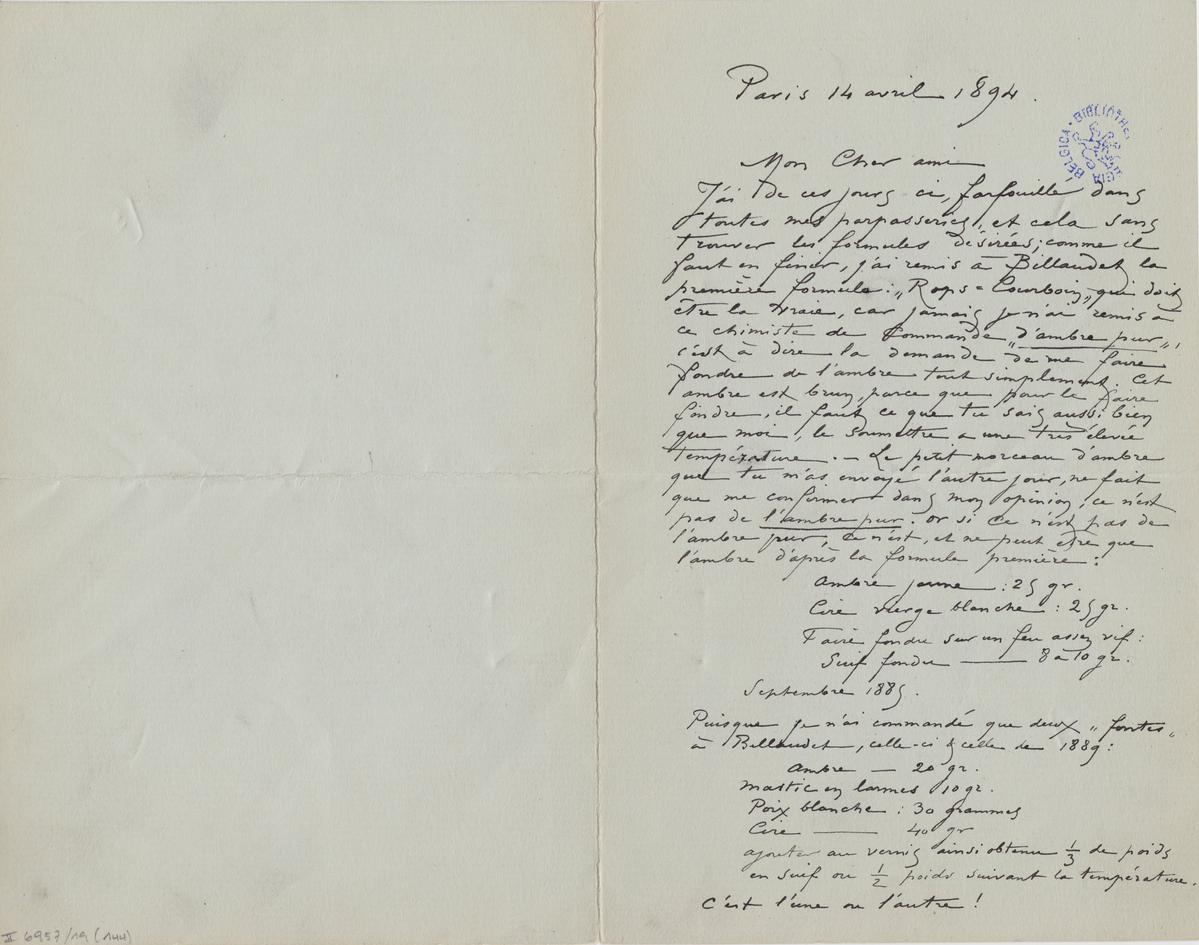 Paris 14 avril 1894.
BIBLIOTHECA REGIA BELGICA
Mon Cher ami
J'ai de ces jours ci, farfouillé dans
toutes mes paperasseries, et cela sans
trouver les formules désirées; comme il
faut en finir, j'ai remis à Billaudet la
première formule: „Rops=Courboin„ qui doit
être la vraie, car jamais je n'ai remis à
ce chimiste de Commande „d'ambre pur„,
c'est à dire la demande de me faire
fondre de l'ambre tout simplement. Cet
ambre est brun, parce que pour le faire
fondre, il faut ce que tu sais aussi bien
que moi, le soumettre a une très élevée
température. — Le petit morceau d'ambre
que tu m'as envoyé l'autre jour, ne fait
que me confirmer dans mon opinion, ce n'est
pas de l'ambre pur. or si ce n'est pas de
l'ambre pur, ce n'est, et ne peut être que
l'ambre d'après la formule première:
Ambre jaune : 25 gr.
Cire vierge blanche : 25 gr.
Faire fondre sur un feu assez vif:
Suif fondu —— 8 à 10 gr.
Septembre 1885.
Puisque je n'ai commandé que deux „fontes„
à Billaudet, celle-ci & celle de 1889:
Ambre — 20 gr.
mastic en larmes 10 gr.
Poix blanche : 30 grammes
Cire —— 40 gr
ajouter au vernis ainsi obtenu 1/3 de poids
en suif ou 1/2 poids suivant la température.
C'est l'une ou l'autre !
II 6957/19 (144)